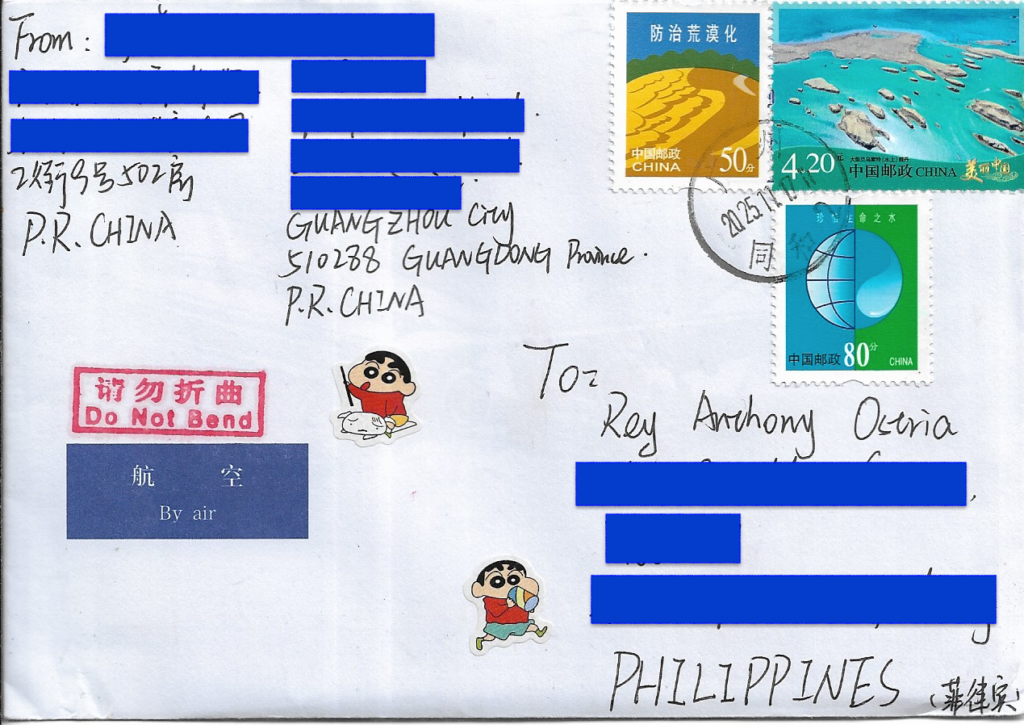 From:
2街9号502房
P.R. CHINA
GUANGZHOU City
510288 GUANGDONG Province.
P.R. CHINA
防治荒漠化
中国邮政
CHINA
50分
4.20元
中国邮政 CHINA
美丽中国
2025.11.17
同
珍惜生命之水
中国邮政 80分 CHINA
请勿折曲
Do Not Bend
航 空
By air
To:
Rey Anthony Oseria
PHILIPPINES (菲律宾)